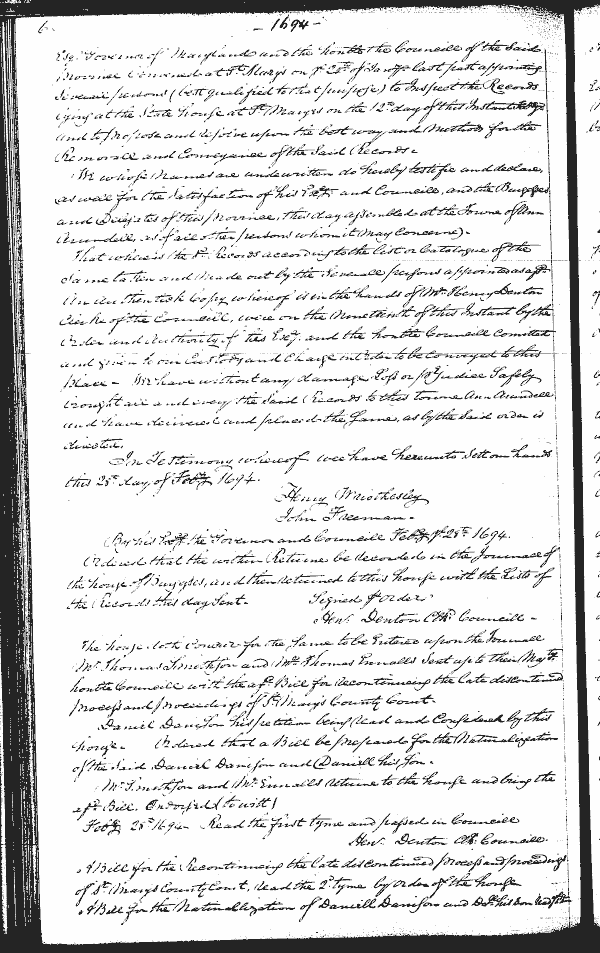 6
- 1694 -
Esqr. Governor of Maryland and the honble the Councill of the Said
Province Convened at St. Marys on ye 28th of Janry last past appointing
Severall persons (best qualified to that purpose) to Inspect the Records
lying at the State house at St. Marys on the 12th day of this Instant
and to propose and resolve upon the best way and Method for the
Removall and Conveyance of the Said Records.
We whose Names are underwritten do hereby testifie and declare,
as well for the Satisfaction of his Exy and Councill, and the Burgesses
and Delegates of this province, this day assembled at the Towne of Ann
Arundell, as of all other persons whom it May Concerne.
That whereas the sd. Records according to the list or Catalogue of the
Same taken and Made out by the Severall persons appointed as afd.
An Authentick Copy whereof is in the hands of Mr. Henry Denton
Clerke of the Councill, were on the Nineteenth of this Instant by the
Order and Authority of his Exy. and the honble Councill Comitted
and given to our Custody and Charge in Order to be Conveyed to this
Place - We have without any damage Loss or prejudice Safely
brought all and every the Said Records to this towne Ann Arundell
and have delivered and placed the Same, as by the Said order is
directed.
In Testimony whereof wee have hereunto Sett our hands
this 28th day of Febry 1694.
Henry Wriothesley
John Freeman.
By his Exy the Governor and Councill Febry ye 28th 1694.
Ordered that the within Returne be recorded in the Journall of
the house of Burgesses, and then returned to this house with the Lists of
the Records this day Sent. Signed p Order
Hen: Denton Clk Councill -
The house doth Concur for the Same to be Entered upon the Journall
Mr. Thomas Smithson and Mr. Thomas Ennalls Sent up to their Majtys
honble Councill with the afd Bill for recontinueing the late discontinued
process and proceedings of St. Marys County Court.
Daniel Danison his petition being read and Considered by this
house. Ordered that a Bill be prepared for the Naturalization
of the Said Daniel Danison and Daniell his Son.
Mr. Smithson and Mr. Ennalls returne to the house and bring the
afd. Bill. Endorsed (to witt)
Febry 28th 1694. Read the first tyme and passed in Councill
Hen: Denton Clk. Councill
A Bill for the Recontinueing the late discontinued process and proceedings
of St. Marys County Court, read the 2d tyme by order of the house
A Bill for the Naturallization of Daniell Danison and Dl. his Son